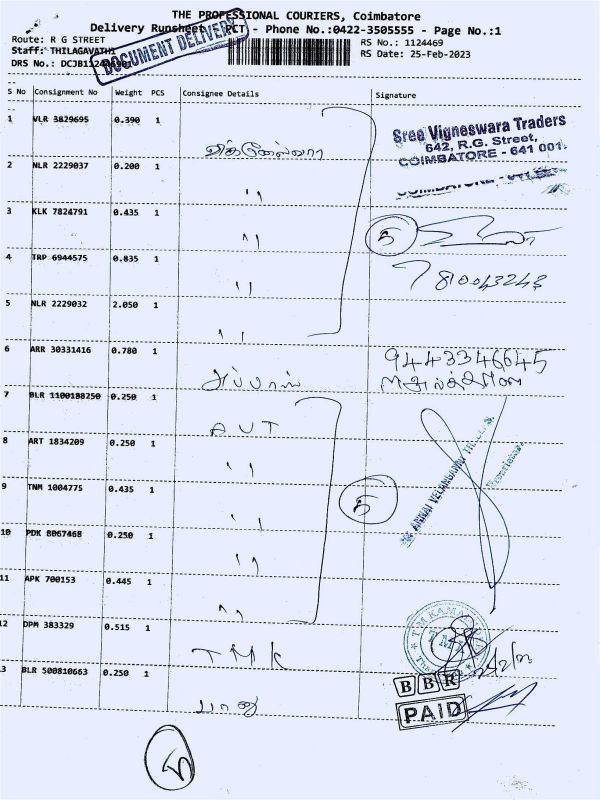 THE PROFESSIONAL COURIERS, Coimbatore
Delivery Runsheet - PCT - Phone No.:0422-3505555 - Page No.:1
DOCUMENT DELIVERY
Route: R G STREET
Staff: THILAGAVATHI
DRS No.:
RS No.: 1124469
RS Date: 25-Feb-2023
S No Consignment No Weight PCS Consignee Details Signature
1 VLR 3829695 0.390 1
Sree Vigneswara Traders
642, R.G. Street,
COIMBATORE - 641 001.
2 NLR 2229037 0.200 1 ''
3 KLK 7824791 0.435 1 ''
5
4 TRP 6944575 0.835 1 ''
5 NLR 2229032 2.050 1 ''
6 ARR 30331416 0.780 1 அப்பாஸ்
9443346645
7 BLR 1100188250 0.250 1 AVT
8 ART 1834209 0.250 1 ''
9 TNM 1004775 0.435 1 ''
5
10 PDK 8067468 0.250 1 ''
11 APK 700153 0.445 1 ''
12 DPM 383329 0.515 1 TMK
13 BLR 500810663 0.250 1 பானு
BBR
PAID